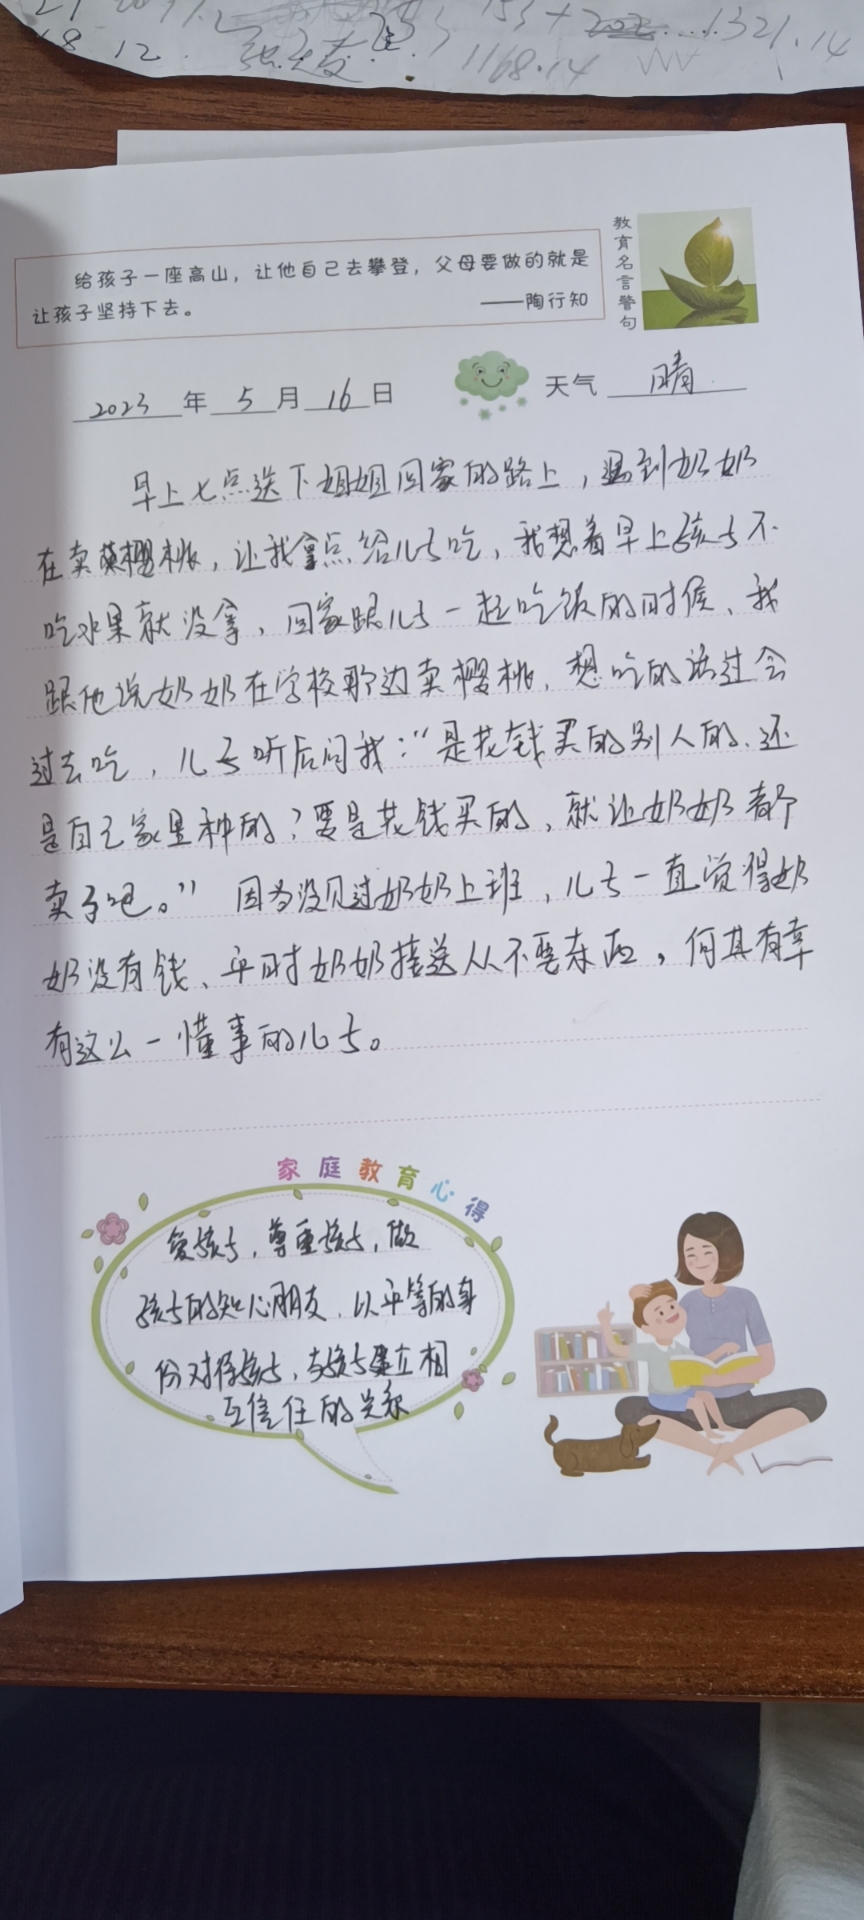 1168.14
给孩子一座高山，让他自己去攀登，父母要做的就是
让孩子坚持下去。 ——陶行知
教育名言警句
2023年5月16日 天气 晴
早上七点送下姐姐回家的路上，遇到奶奶
在卖樱桃，让我拿点给儿子吃，我想着早上孩子不
吃水果就没拿，回家跟儿子一起吃饭的时候、我
跟他说奶奶在学校那边卖樱桃，想吃的话过会
过去吃，儿子听后问我：“是花钱买的别人的、还
是自己家里种的？要是花钱买的，就让奶奶都
卖了吧。” 因为没见过奶奶上班，儿子一直觉得奶
奶没有钱、平时奶奶接送从不要东西，何其有幸
有这么一懂事的儿子。
家庭教育心得
爱孩子，尊重孩子，做
孩子的知心朋友、以平等的身
份对待孩子，与孩子建立相
互信任的关系